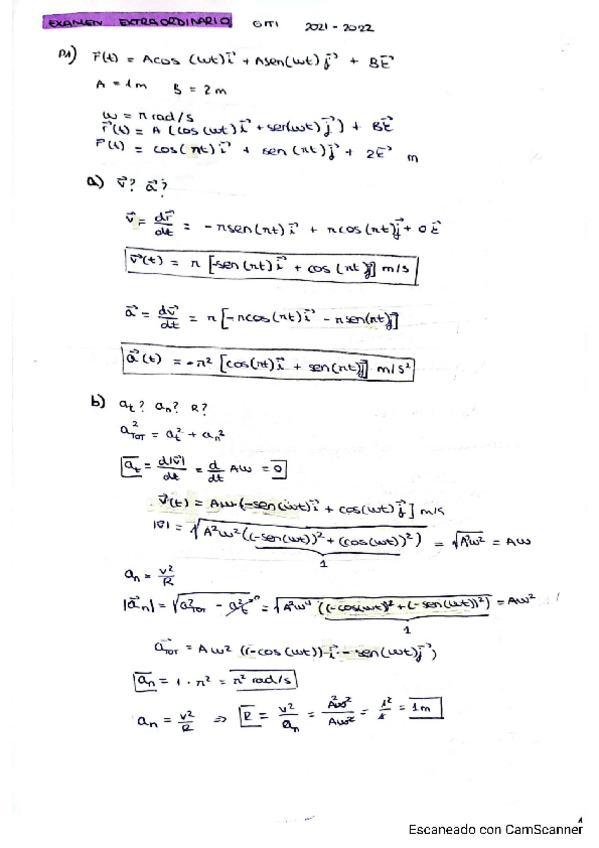 EXAMEN EXTRAORDINARIO GITI 2021-2022
P1) r⃗(t) = Acos(wt)i⃗ + Asen(wt)j⃗ + Bk⃗
A = 1m B = 2m
w = π rad/s
r⃗(t) = A (cos(wt)i⃗ + sen(wt)j⃗) + Bk⃗
r⃗(t) = cos(πt)i⃗ + sen(πt)j⃗ + 2k⃗ m
a) v⃗? a⃗?
v⃗ = dr⃗/dt = -πsen(πt)i⃗ + πcos(πt)j⃗ + 0k⃗
v⃗(t) = π [-sen(πt)i⃗ + cos(πt)j⃗] m/s
a⃗ = dv⃗/dt = π[-πcos(πt)i⃗ - πsen(πt)j⃗]
a⃗(t) = -π² [cos(πt)i⃗ + sen(πt)j⃗] m/s²
b) at? an? R?
a²TOT = at² + an²
at = d|v⃗|/dt = d/dt Aw = 0
v⃗(t) = Aw(-sen(wt)i⃗ + cos(wt)j⃗] m/s
|v⃗| = √A²w²((-sen(wt))² + (cos(wt))²) = √A²w² = Aw
1
an = v²/R
|a⃗n| = √a²TOT - at² = √A²w⁴ ((-cos(wt))² + (-sen(wt))²) = Aw²
1
a⃗TOT = Aw² ((-cos(wt))i⃗ - sen(wt)j⃗)
an = 1 · π² = π² rad/s
an = v²/R ⇒ R = v²/an = A²w²/Aw² = 1²/1 = 1m
Escaneado con CamScanner